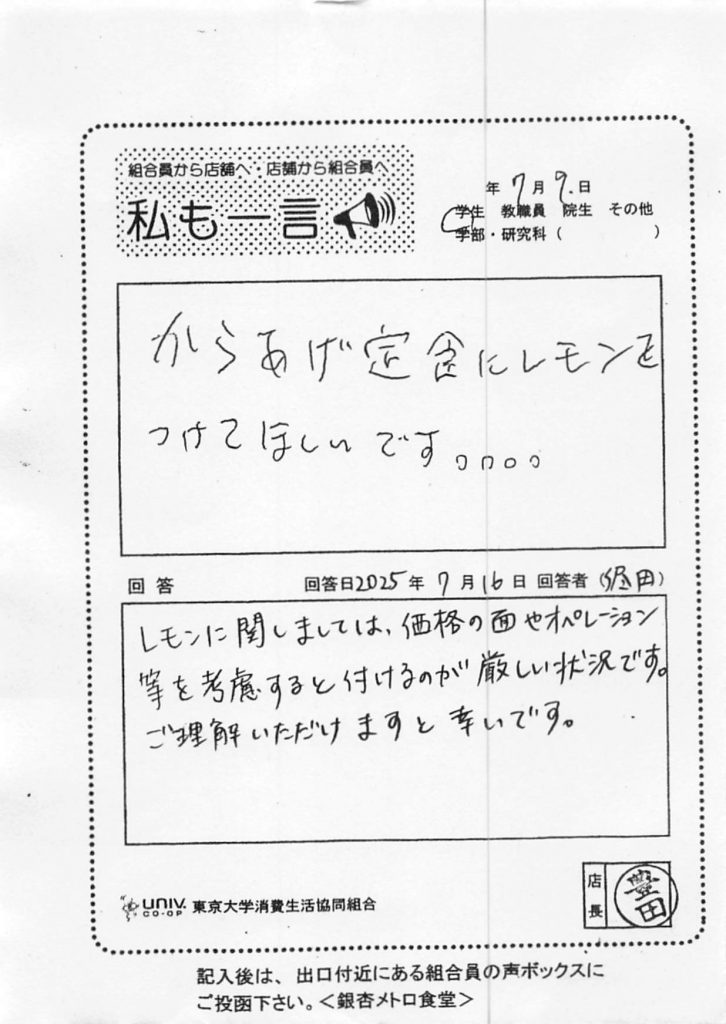 組合員から店舗へ・店舗から組合員へ
私も一言
年 7月 9.日
学生 教職員 院生 その他
学部・研究科( )
からあげ定食にレモンを
つけてほしいです。。。。
回答 回答日2025年 7月16日 回答者(田)
レモンに関しましては、価格の面やオペレーション
等を考慮すると付けるのが厳しい状況です。
ご理解いただけますと幸いです。
UNIV. CO-OP 東京大学消費生活協同組合
店長 豊田
記入後は、出口付近にある組合員の声ボックスに
ご投函下さい。<銀杏メトロ食堂>